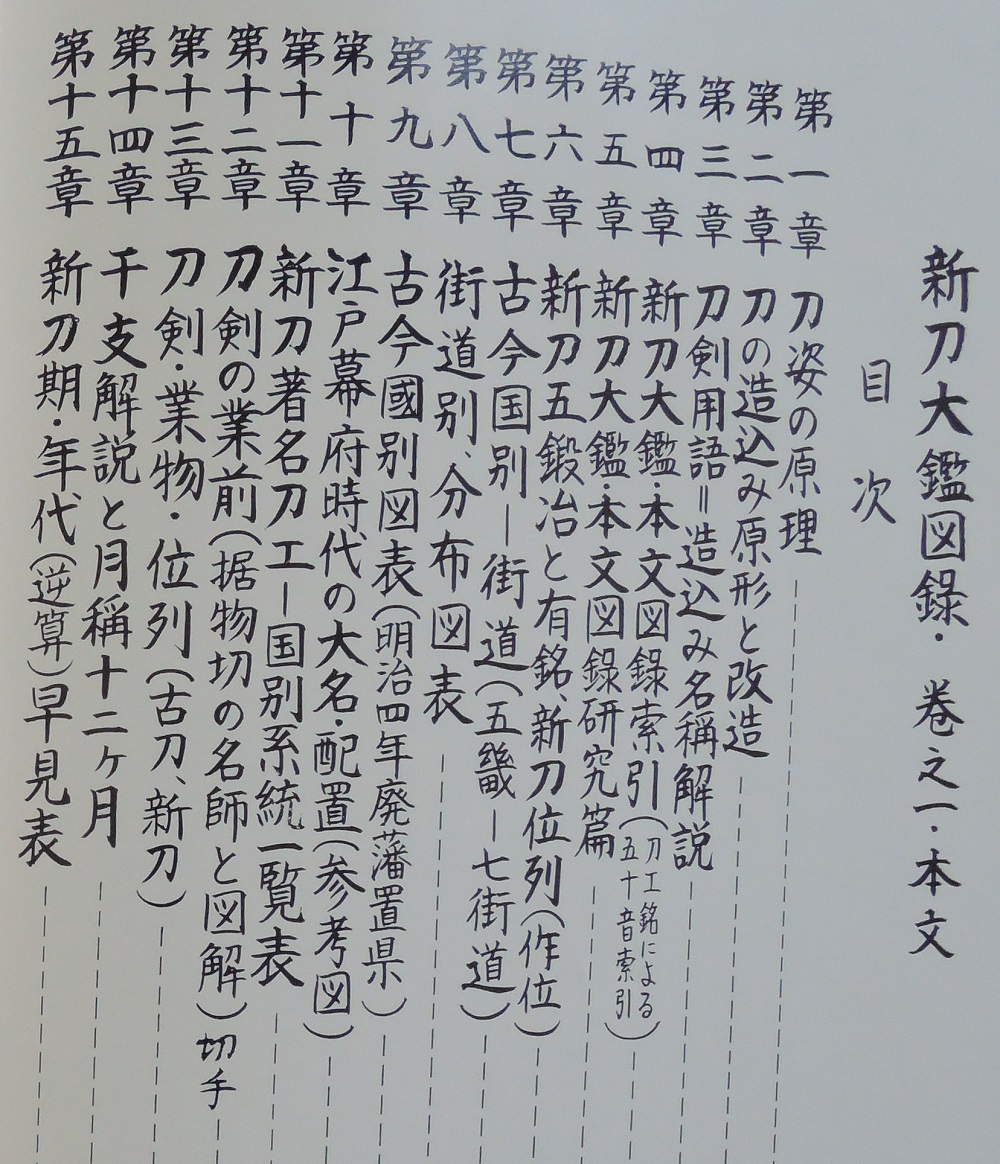 新刀大鑑図錄・巻之一・本文
目次
第一章 刀姿の原理
第二章 刀の造込み原形と改造
第三章 刀剣用語=造込み名稱解説
第四章 新刀大鑑・本文図錄索引(刀工銘による五十音索引)
第五章 新刀大鑑・本文図錄研究篇
第六章 新刀五鍛冶と有銘、新刀位列(作位)
第七章 古今国別ー街道(五畿ー七街道)
第八章 街道別、分布図表
第九章 古今國別図表(明治四年廃藩置県)
第十章 江戸幕府時代の大名・配置(参考図)
第十一章 新刀著名刀工ー国別系統一覧表
第十二章 刀剣の業前(据物切の名師と図解)切手
第十三章 刀剣・業物・位列(古刀、新刀)
第十四章 干支解説と月稱十二ヶ月
第十五章 新刀期・年代(逆算)早見表